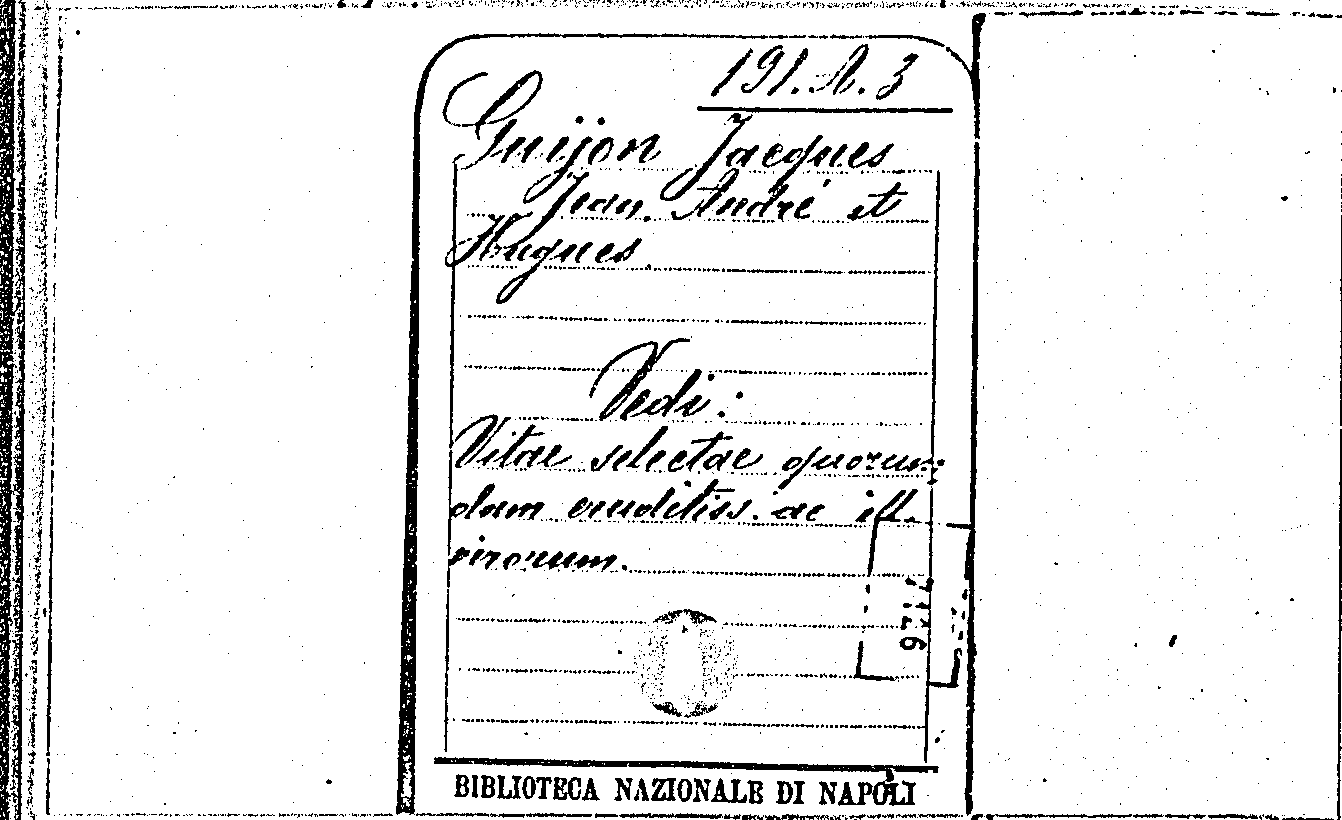 191.A.3
Guijon Jacques
Jean. André et
Hugues.
Vedi:
Vitae selectae quorum
dam eruditiss. ac ill.
virorum.
BIBLIOTECA NAZIONALE DI NAPOLI